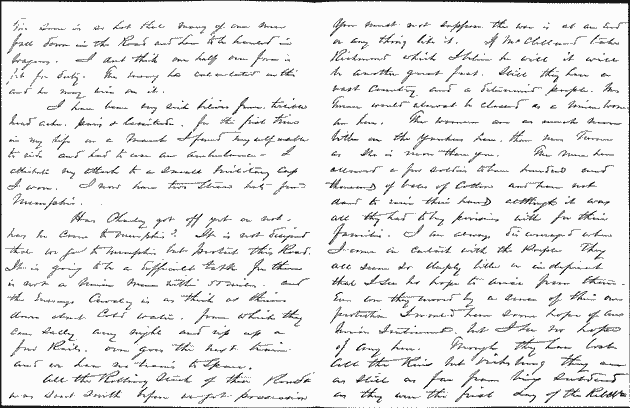 The sun is so hot that many of our men
fall down in the Road and have to be hauled in
wagons. I dont think one half our force is
fit for duty. The enemy has calculated on this
and he may win on it.
I have been very sick bilious fever terrible
head ache pains & lassitude. for the first time
in my life on a March I found myself unable
to ride and had to use an Ambulance - I
attribute my attack to a small military cap
I wore. I now have straw hat from
Memphis.
Has Charley got off yet or not -
has he come to Memphis? It is not designed
that we go to Memphis but protect this Road.
It is going to be a difficult task for there
is not a Union man within miles. and
the Enemys Cavalry is as thick as thieves
down about Cold water. from which they
can sally any night and rip up a
few Rails. over goes the next train
and we have no trains to spare.
All the Rolling Stock of this Road
was sent South before we got possession
You must not suppose the war is at an end
or any thing like it. If McClellan takes
Richmond which I believe he will it will
be another great feat. Still they have a
vast Country and a determined people. Mrs
would almost be classed as a Union woman
here. The women are as much more
bitter on the Yankees here, than Mrs Turner
as she is more than you. The men have
allowed a few soldiers to burn hundred and
thousands of bales of Cotton and have not
dared to raise their hand although it was
all they had to buy provisions with for their
families. I am always discouraged when
I come in contact with the People They
all seem so deeply bitter or indifferent
that I see no hope to arise from them.
Even are they moved by a sense of their own
protection I would have some hope of an
Union Sentiment. but I see no hopes
of any here. Though they have lost
all the River but Vicksburg they are
as still as far from being subdued
as they were the first day of the Rebellion